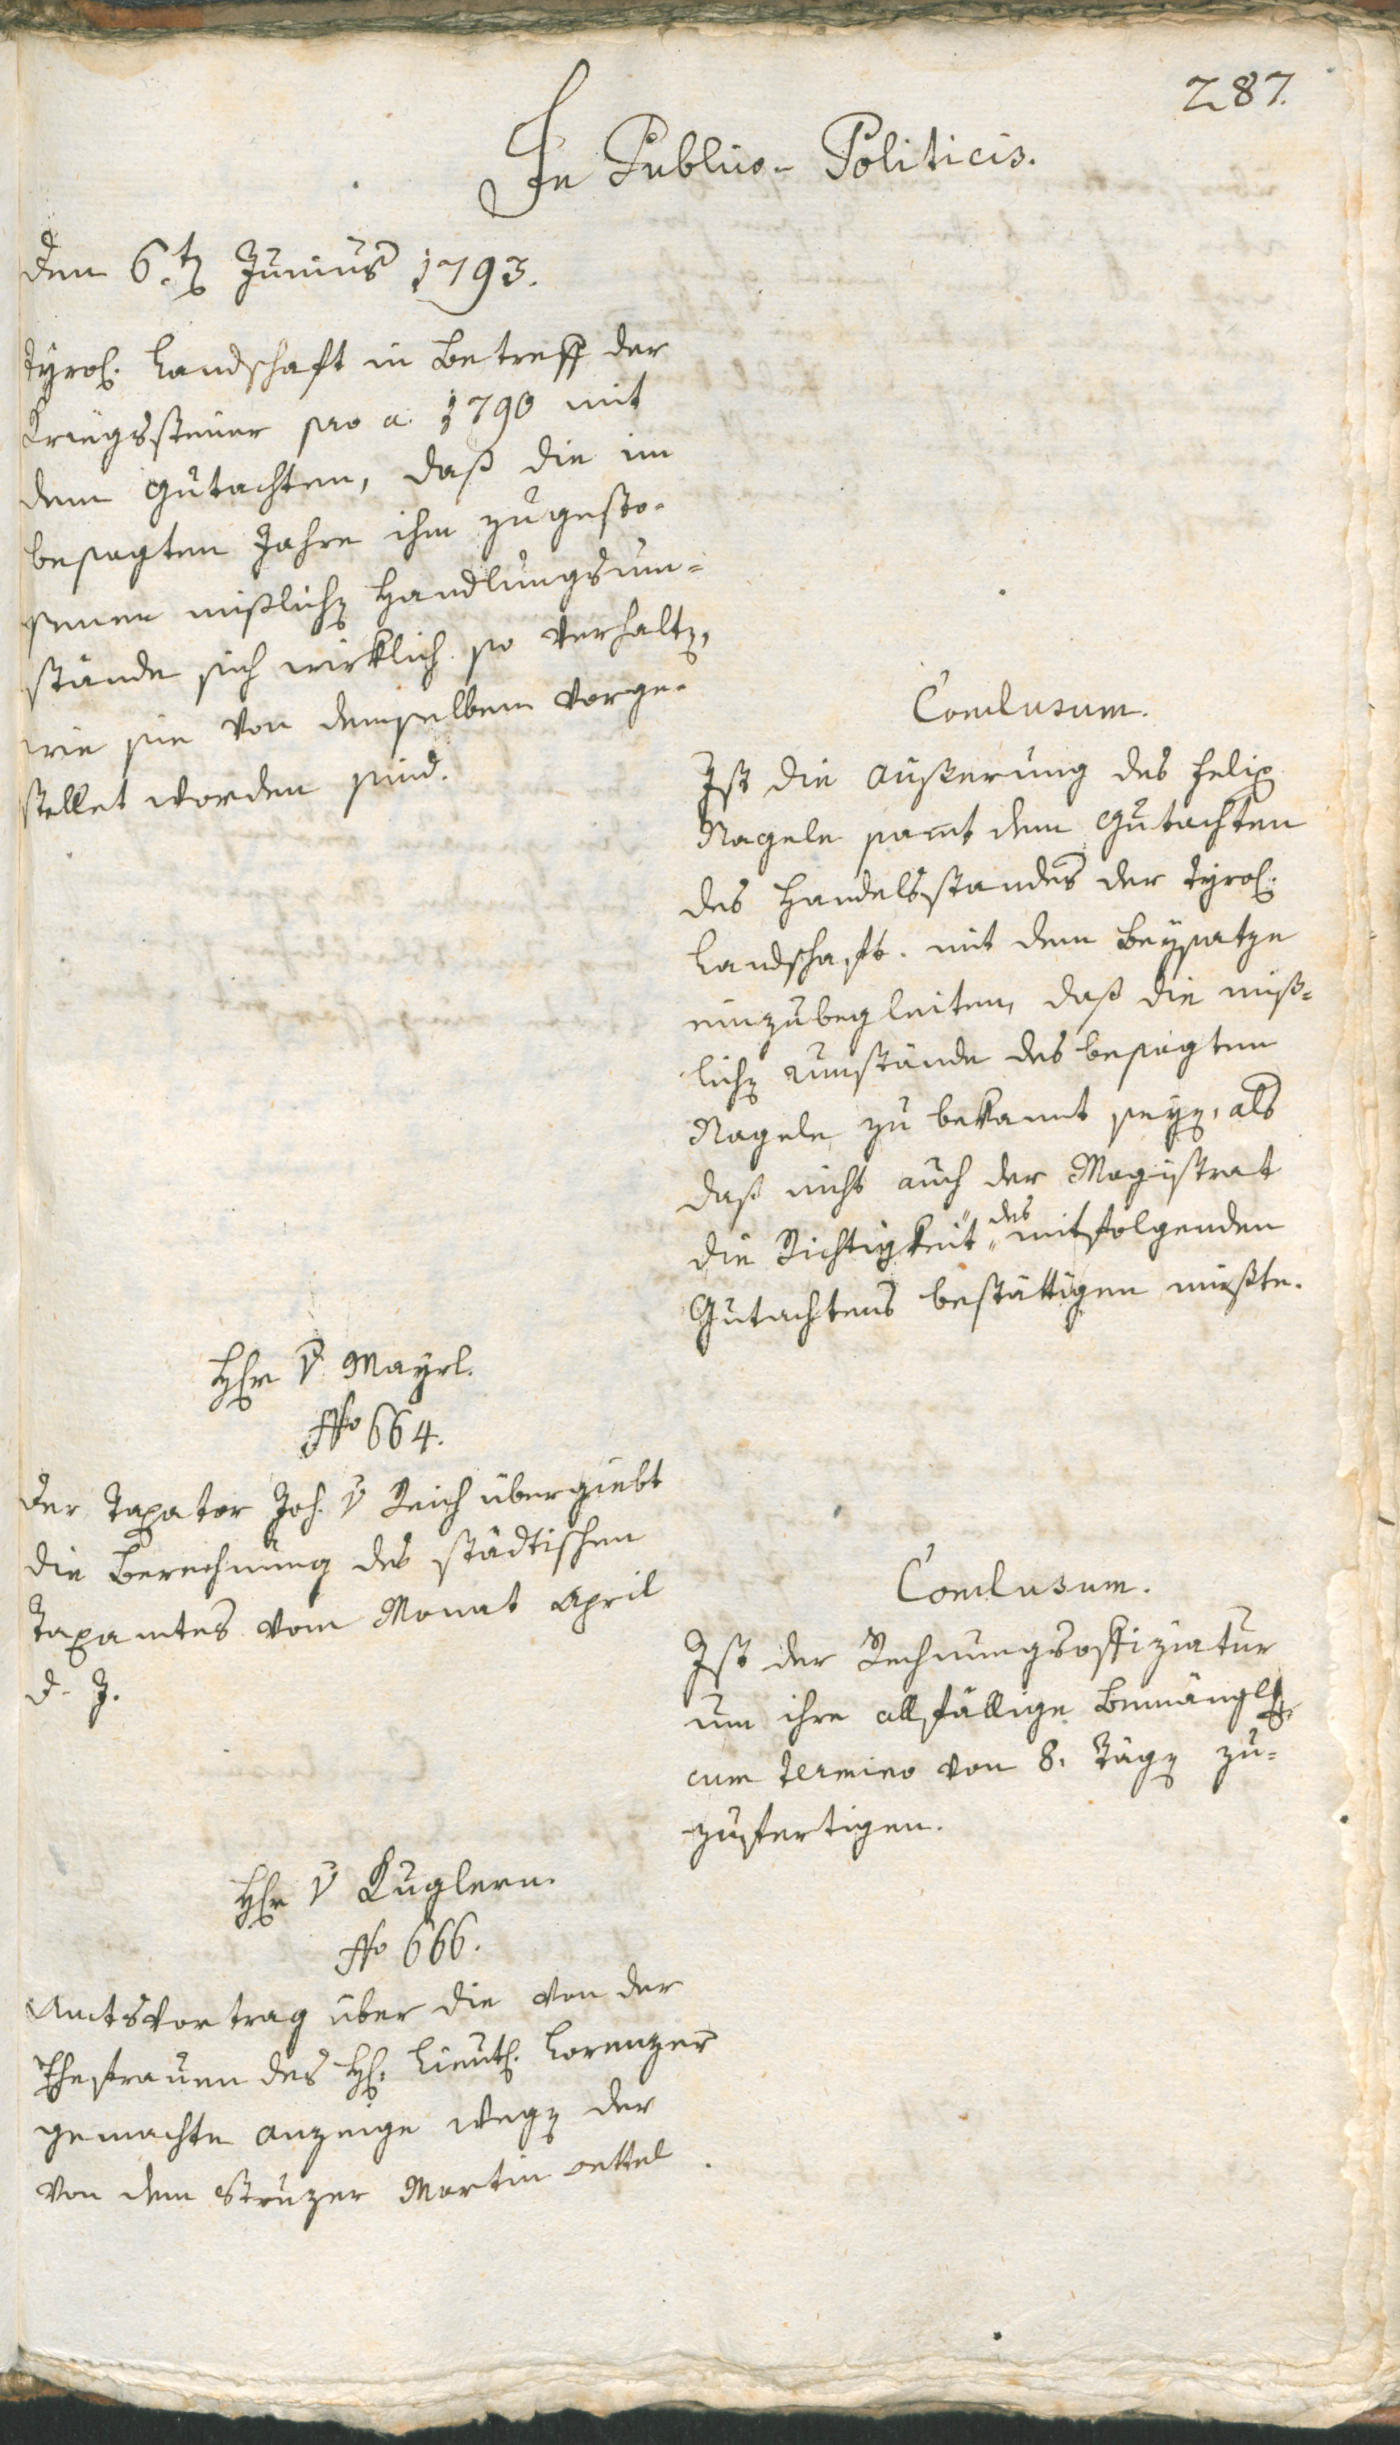 287.
In Publico-Politicis.
den 6.ten Junius 1793.
Tyrol. Landschaft in Betreff der
Kriegssteuer pro a. 1790 mit
dem Gutachten, daß die im
besagten Jahre ihm zugesto-
ssenen mißlichen Handlungsum-
stände sich wirklich so verhalten,
wie sie von demselben vorge-
stellet worden sind.
Conclusum.
Ist die Äußerung des Felix
Nagele samt dem Gutachten
des Handelsstandes der Tyrol.
Landschaft mit dem Beysatze
einzubegleiten, daß die miß-
lichen Umstände des besagten
Nagele zu bekannt seyen, als
daß nicht auch der Magistrat
die Richtigkeit des mitfolgenden
Gutachtens bestättigen müßte.
Hr. v. Mayrl.
No 664.
Der Taxator Joh. v. Reich übergiebt
die Berechnung des städtischen
Taxamtes vom Monat April
d. J.
Conclusum.
Ist der Rechnungsoffiziatur
um ihre allfällige Bemänglg.
cum termino von 8. Tägen zu-
zufertigen.
Hr. v. Kuglern.
No 666.
Amtsvortrag über die von der
Ehefrauen des H. Lieut. Lorenzer
gemachte Anzeige wegen der
von dem Stuzer Martin Oettel